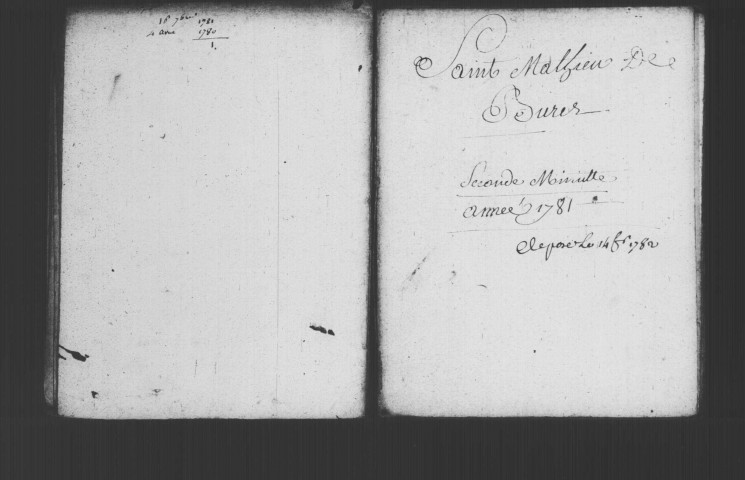 16 7bre 1781
4 avril 1780
1.
Saint Mathieu De
Bures
Seconde Minutte
année 1781
deposé Le 14 fr 1782